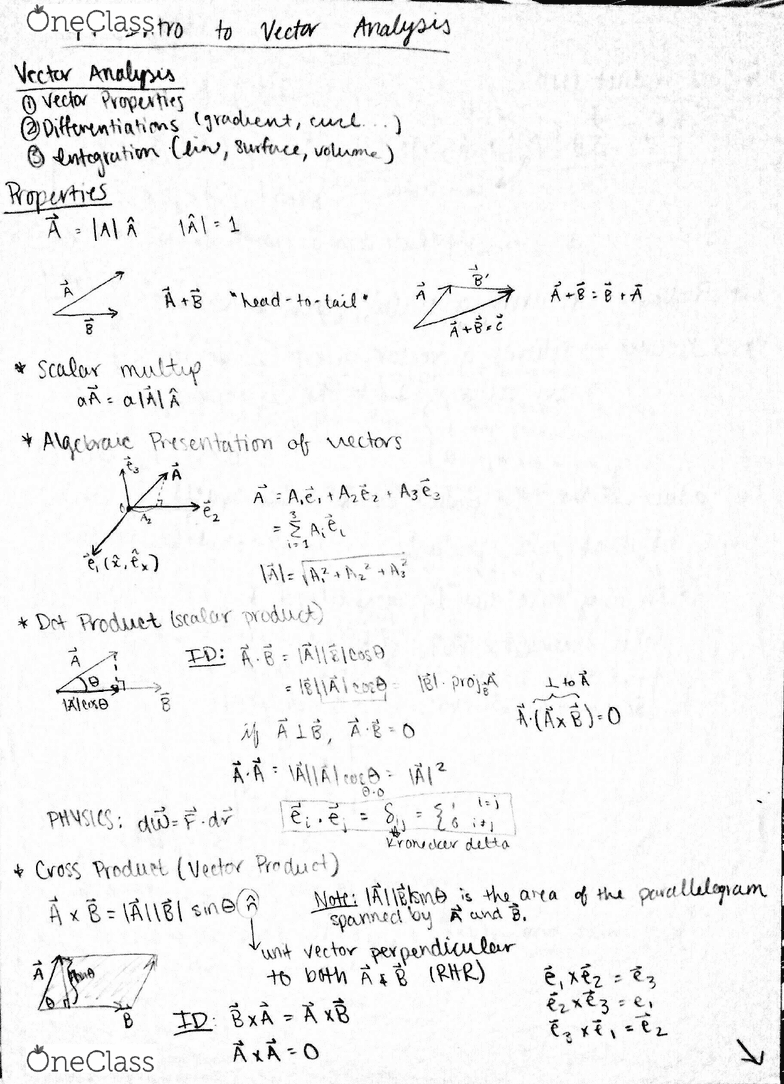 OneClass
Intro to Vector Analysis
Vector Analysis
① Vector Properties
② Differentiations (gradient, curl...)
③ Integration (line, surface, volume)
Properties
A⃗ = |A| Â |Â| = 1
A⃗ B⃗ A⃗+B⃗ "head-to-tail" A⃗ B⃗' A⃗+B⃗=C⃗ A⃗+B⃗ = B⃗+A⃗
* Scalar multip
aA⃗ = a|A⃗|Â
* Algebraic Presentation of vectors
e⃗₃ A⃗ A₂ e⃗₂ e⃗₁(x̂, ê_x)
A⃗ = A₁e⃗₁ + A₂e⃗₂ + A₃e⃗₃
= Σ_{i=1}^{3} Aᵢe⃗ᵢ
|A⃗| = √(A₁² + A₂² + A₃²)
* Dot Product (scalar product)
A⃗ θ |A⃗|cosθ B⃗
ID: A⃗·B⃗ = |A⃗||B⃗|cosθ
= |B⃗||A⃗|cosθ = |B⃗|·proj_B A⃗
⊥ to A⃗
A⃗·(A⃗×B⃗)=0
if A⃗⊥B⃗, A⃗·B⃗ = 0
A⃗·A⃗ = |A⃗||A⃗|cosθ = |A⃗|²
θ=0
PHYSICS: dw⃗=F⃗·dr⃗ e⃗ᵢ·e⃗ⱼ = δᵢⱼ = {1 i=j
0 i≠j
Kronecker delta
* Cross Product (Vector Product)
A⃗ × B⃗ = |A⃗||B⃗| sinθ n̂
Note: |A⃗||B⃗|sinθ is the area of the parallelogram
spanned by A⃗ and B⃗.
unit vector perpendicular
to both A⃗ & B⃗ (RHR)
A⃗ θ B⃗
e⃗₁×e⃗₂ = e⃗₃
e⃗₂×e⃗₃ = e₁
e⃗₃×e⃗₁ = e⃗₂
ID: B⃗×A⃗ = A⃗×B⃗
A⃗×A⃗ = 0
OneClass